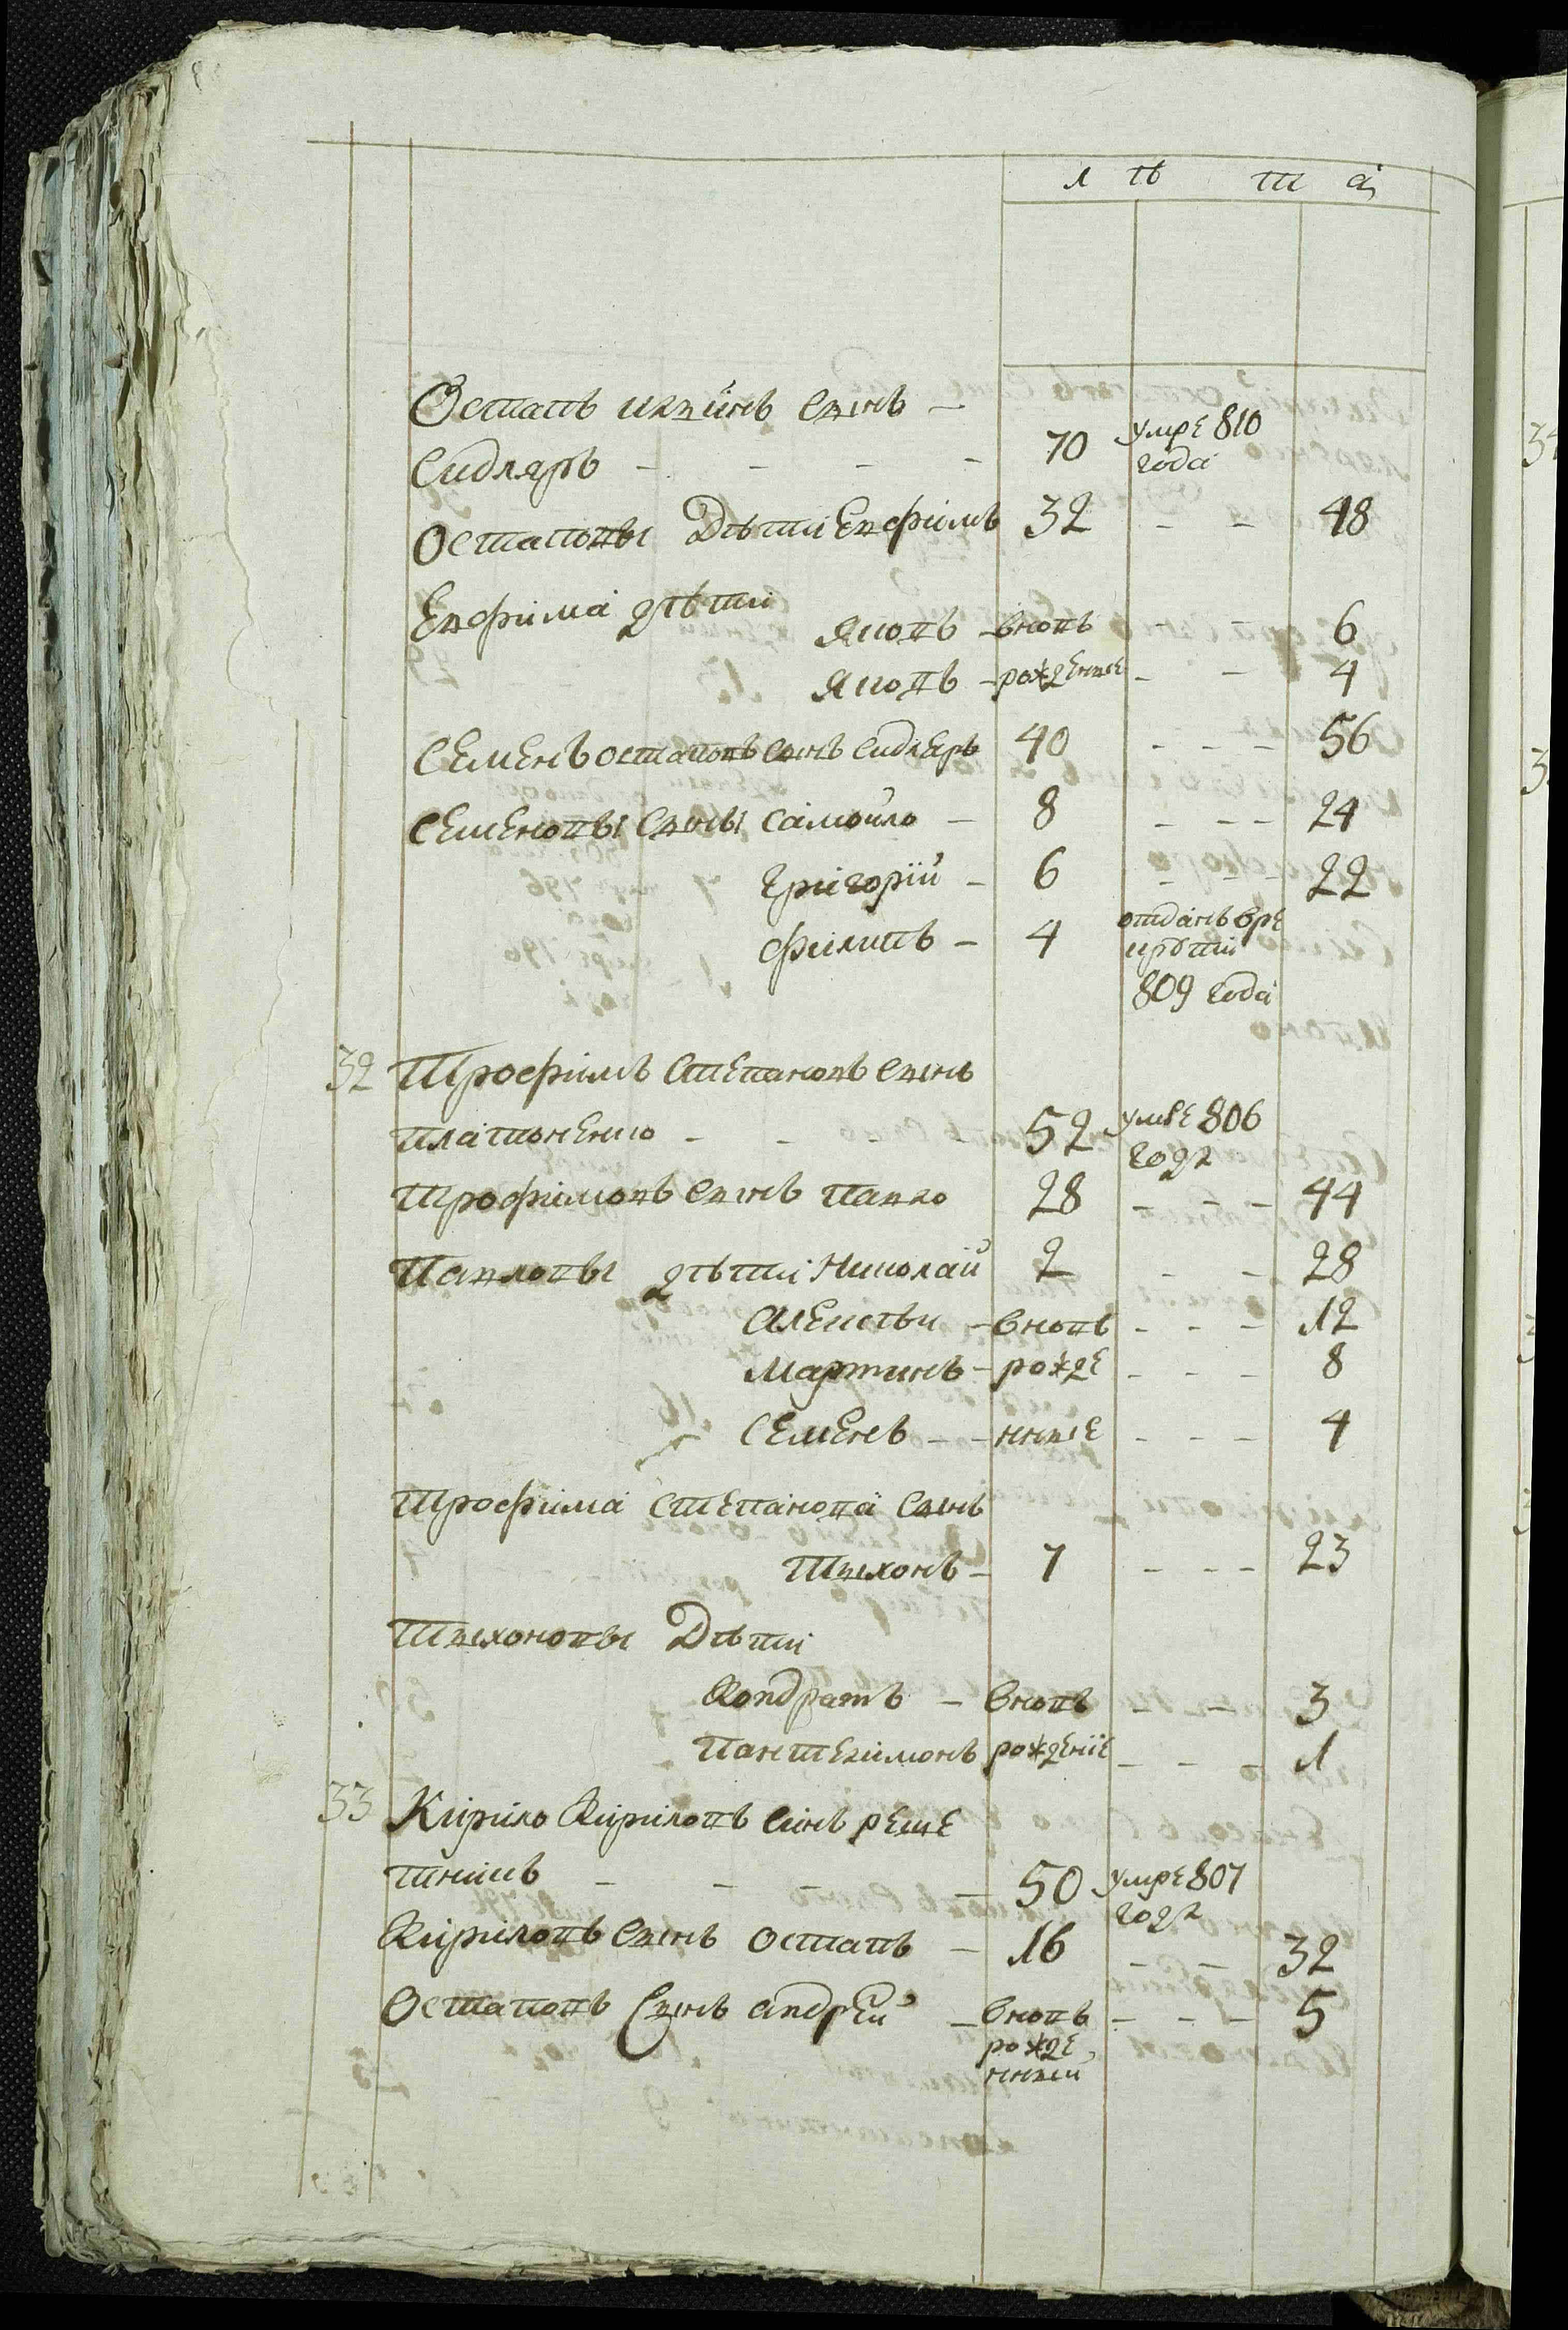 л ѣ т а
Остапъ илвинъ сынъ -
Сидляръ - - - - 70 умре 810 года
Остаповы Дѣти Евфимъ 32 - - 48
Евфима дѣти
Яковъ - вновъ - - 6
Яковъ - рожденные - - 4
Семенъ остаповъ сынъ сидляръ 40 - - - 56
Семеновы сыны самойло - 8 - - - 24
Григорій - 6 - - - 22
Филипъ - 4 отданъ вре
крѵти
809 года
32 Трофимъ Степановъ сынъ
платоненко - - - 52 умре 806 года
Трофимовъ сынъ Павло 28 - - - 44
Павловы дѣти Николай 2 - - 28
Алексѣи - вновъ - - - 12
Мартинъ - рожде - - - 8
Семенъ - - нные - - - 4
Трофима степанова сынъ
Тыхонъ - 7 - - - 23
Тыхоновы Дѣти
Кондратъ - вновъ - - 3
Пантелимонъ рожденіе - - - 1
33 Кирило Кириловъ синъ реше
тникъ - - - - 50 умре 807 года
Кириловъ сынъ остапъ - 16 - - 32
Остаповъ Сынъ андрей - вновъ - - - 5
рожде
нный